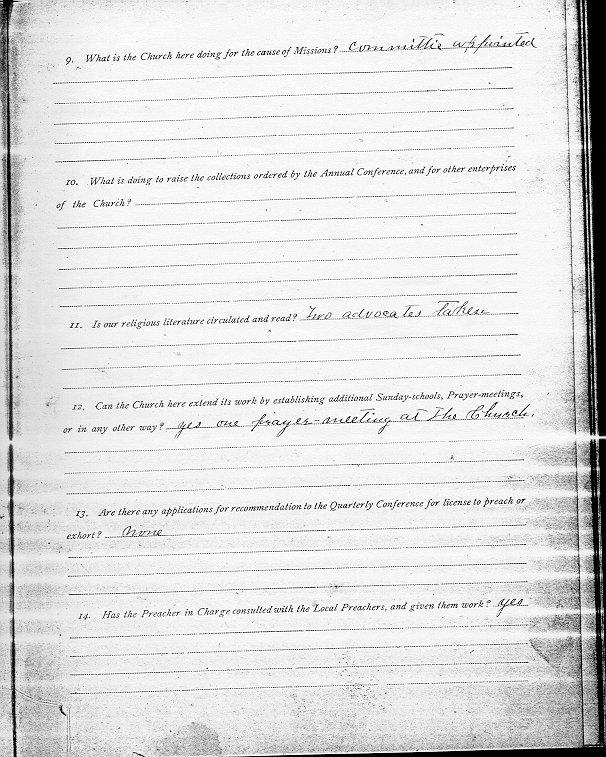 9. What is the Church here doing for the cause of Missions? Committie appointed
10. What is doing to raise the collections ordered by the Annual Conference, and for other enterprises
of the Church?
11. Is our religious literature circulated and read? Two advocates taken
12. Can the Church here extend its work by establishing additional Sunday-schools, Prayer-meetings,
or in any other way? yes one prayer-meeting at the Church.
13. Are there any applications for recommendation to the Quarterly Conference for license to preach or
exhort? None
14. Has the Preacher in Charge consulted with the Local Preachers, and given them work? yes